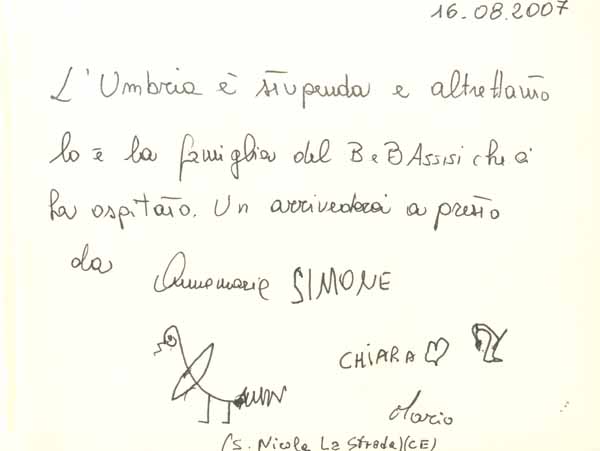 16.08.2007
L'Umbria è stupenda e altrettanto
lo è la famiglia del B e B Assisi che ci
ha ospitato. Un arrivederci a presto
da Annamaria SIMONE
CHIARA
Mario
(S. Nicola La Strada)(CE)